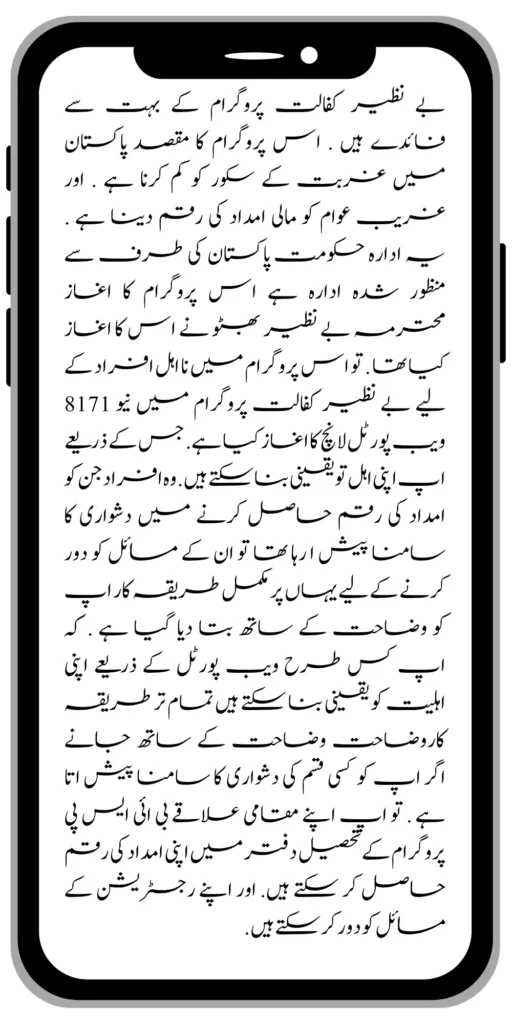 بے نظیر کفالت پروگرام کے بہت سے
فائدے ہیں . اس پروگرام کا مقصد پاکستان
میں غربت کے سکور کو کم کرنا ہے . اور
غریب عوام کو مالی امداد کی رقم دینا ہے .
یہ ادارہ حکومت پاکستان کی طرف سے
منظور شدہ ادارہ ہے اس پروگرام کا اغاز
محترمہ بے نظیر بھٹو نے اس کا اغاز
کیا تھا . تو اس پروگرام میں نااہل افراد کے
لیے بے نظیر کفالت پروگرام میں نیو 8171
ویب پورٹل لانچ کا اغاز کیا ہے . جس کے ذریعے
اپ اپنی اہل تو یقینی بنا سکتے ہیں . وہ افراد جن کو
امداد کی رقم حاصل کرنے میں دشواری کا
سامنا پیش ا رہا تھا تو ان کے مسائل کو دور
کرنے کے لیے یہاں پر مکمل طریقہ کار اپ
کو وضاحت کے ساتھ بتا دیا گیا ہے . کہ
اپ کس طرح ویب پورٹل کے ذریعے اپنی
اہلیت کو یقینی بنا سکتے ہیں تمام تر طریقہ
کار وضاحت وضاحت کے ساتھ جانے
اگر اپ کو کسی قسم کی دشواری کا سامنا پیش اتا
ہے . تو اپ اپنے مقامی علاقے بی ائی ایس پی
پروگرام کے تحصیل دفتر میں اپنی امداد کی رقم
حاصل کر سکتے ہیں . اور اپنے رجسٹریشن کے
مسائل کو دور کر سکتے ہیں .